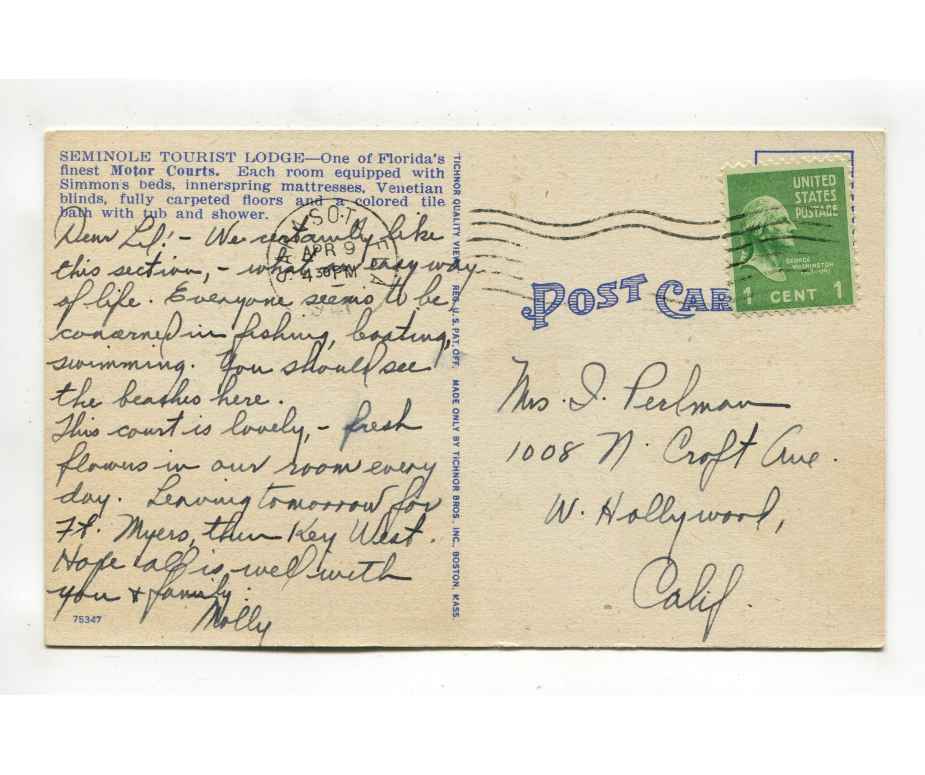 SEMINOLE TOURIST LODGE—One of Florida's
finest Motor Courts. Each room equipped with
Simmon's beds, innerspring mattresses, Venetian
blinds, fully carpeted floors and a colored tile
bath with tub and shower.
Dear Lil! - We certainly like
this section, - what an easy way
of life. Everyone seems to be
concerned in fishing, boating,
swimming. You should see
the beaches here.
This court is lovely, - fresh
flowers in our room every
day. Leaving tomorrow for
Ft. Myers, then Key West.
Hope all is well with
you & family.
Molly
75347
TICHNOR QUALITY VIEWS REG. U. S. PAT. OFF. MADE ONLY BY TICHNOR BROS., INC., BOSTON, MASS.
APR 9
4 30 PM
FLA
POST CAR
UNITED
STATES
POSTAGE
GEORGE
WASHINGTON
1 CENT 1
Mrs. I. Perlman
1008 N. Croft Ave.
W. Hollywood,
Calif.